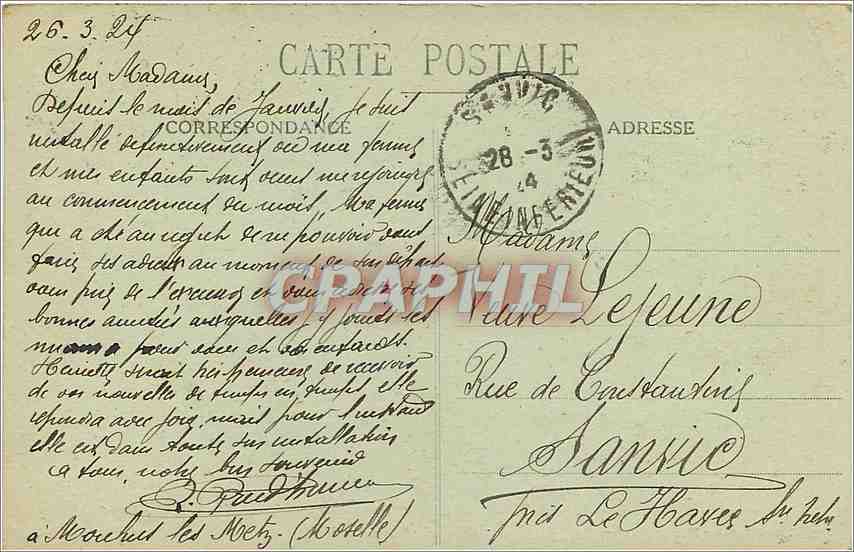 26.3.24
CARTE POSTALE
CORRESPONDANCE
ADRESSE
Chère Madame,
Depuis le mois de Janvier, je suis
installé définitivement où ma femme
et mes enfants sont venus me rejoindre
au commencement du mois. Ma femme
qui a été au regret de ne pouvoir vous
faire ses adieux au moment de son départ
vous prie de l'excuser et vous envoie ses
bonnes amitiés auxquelles j'y joins les
pour vous et vos enfants.
Henriette serait très heureuse de recevoir
de vos nouvelles de temps en temps elle
repondra avec joie, mais pour l'instant
elle est dans toute son installation
a tous, notre bon souvenir
Prudhomme
à Moulins les Metz. (Moselle)
SANVIC
28 -3
24
SEINE INFERIEURE
Madame
Veuve Lejeune
Rue de Constantine
Sanvic
près Le Havre
CPAPHIL